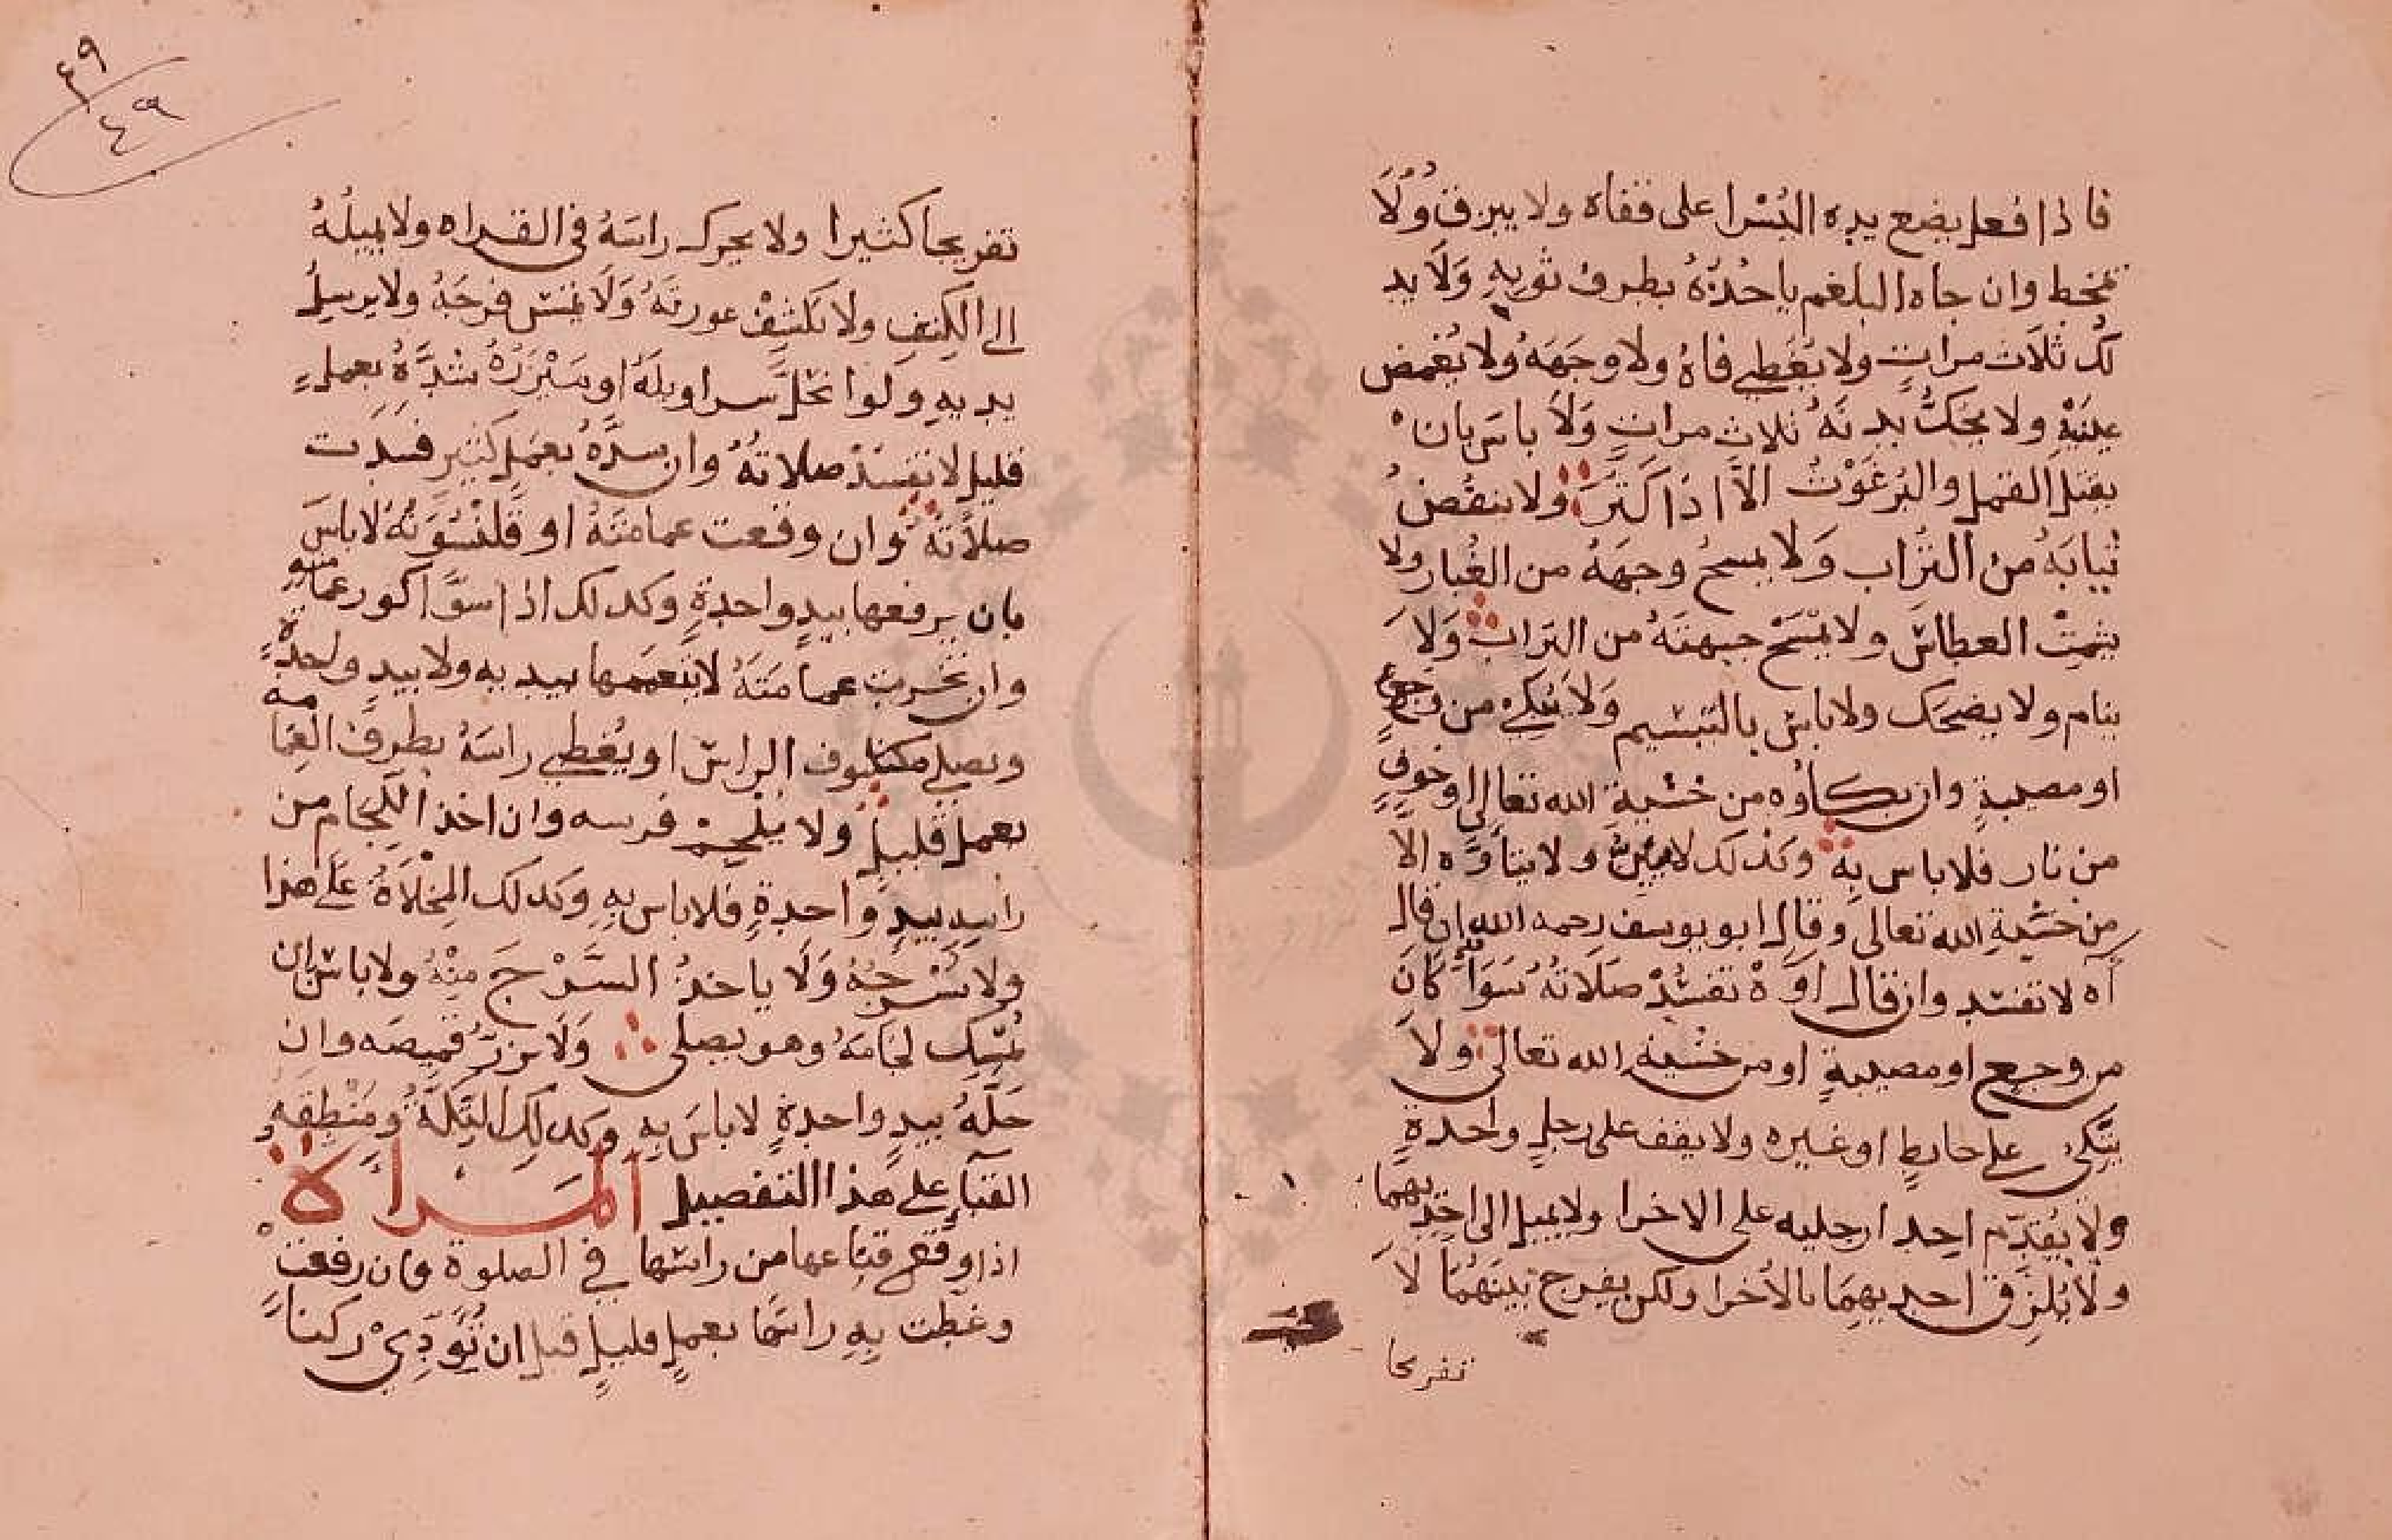 فاذا فعل يضع يده اليُسْرا على قفاه ولا يبزق وُلَا
يمخط وان جاه البلغم ياخُذُهُ بطرف ثوبِهِ وَلَا يد
لُك ثلَاث مراتٍ ولا يُغَطي فاهُ ولا وجهَهُ ولا يُغمض
عينَيْهِ ولا يحكُّ بدنَهُ ثلاث مراتٍ وَلَا باسَ بان
يقتل القمل والبُرغَوْث الَّا اذا كَثَرَ ولا ينفُضُ
ثيابَهُ من التُرَاب وَلَا يمسحُ وجهَهُ من الغُبار ولا
يشمِتْ العطاسَ ولا يمْسَحْ جبهتَهُ من التراب وَلَا
ينام ولا يضحك ولا باسَ بالتبَسُيم وَلَا يَبْكِي من وَجعٍ
او مصيبةٍ وان بكاوُه من خشيةِ الله تعالى او خوفٍ
من نار فلا باس بِهِ وكذلك لا يئِنُّ ولا يتاوَّه الا
من خشيةِ الله تعالى وقال ابو يوسف رحمه الله ان قال
آه لا تفسد وان قال اوه تفسُدْ صلَاتهُ سَوَآءٌ كانَ
من وجعٍ او مصيبةٍ او من خشيةِ الله تعالى ولا
يتَّكِىُ على حايطٍ او غيره ولا يقف على رجلٍ واحدةٍ
ولا يُقدِّم احد ارجليه على الاخرا ولا يميل الى احَدِيهِما
ولا يُلزِق احديهِمَا بالأُخرا ولكن يفرج بينَهُمَا لَا
تفريجا
٤٩
٤٩
تفريجا كثيرا ولا يحرك راسَهُ في القراه ولا يميلُهُ
الى الكِتِفِ ولا تكشِفْ عورتَهُ وَلَا يمَسَّ فرجَهُ ولا يرسِلُ
يديهِ ولوا نحَلَّ سراويلَهُ او مئزَرُهُ شدَّهُ بعملٍ
قليلٍ لا تفسَدْ صلاتهُ وان سدَّهُ بعَمَلٍ كثيرٍ فسَدَت
صلَاتهُ وان وقعت عمامتَهُ او قَلَنْسُوَتهُ لا باسَ
بان يرفعها بيدٍ واحدةٍ وكذلك اذا سوَّا كور عمامته
وان تخربت عمامَتَهُ لا يتعممها بيديه ولا بيدٍ واحدةٍ
ويصلي مكشوف الراسِ او يُغطي راسَهُ بطرفِ العِمامه
بعملٍ قليلٍ ولا يُلْجِمْ فرسه وان اخذ اللَّجام من
راسِهِ بيدٍ واحدةٍ فلا باس بهِ وكذلك المِخْلَاةُ عَلى هذا
ولا يُسْرجُهُ وَلَا ياخذُ السَّرْجَ مِنْهُ ولا باسَ ان
يُمْسِك لجَامَهُ وهو يصلى وَلَا يزرُّ قميصَه وان
حَلَّهُ بيدٍ واحدةٍ لا باسَ بِهِ وكذلِك التِكَّةُ ومَنْطِقه
القبآءِ على هذا التفصيل المَراة
اذا وقع قناعها من راسها في الصلوة وان رفعتْ
وغطت بِهِ راسَها بعملٍ قليلٍ قبل ان تُؤَدِي رُكناً